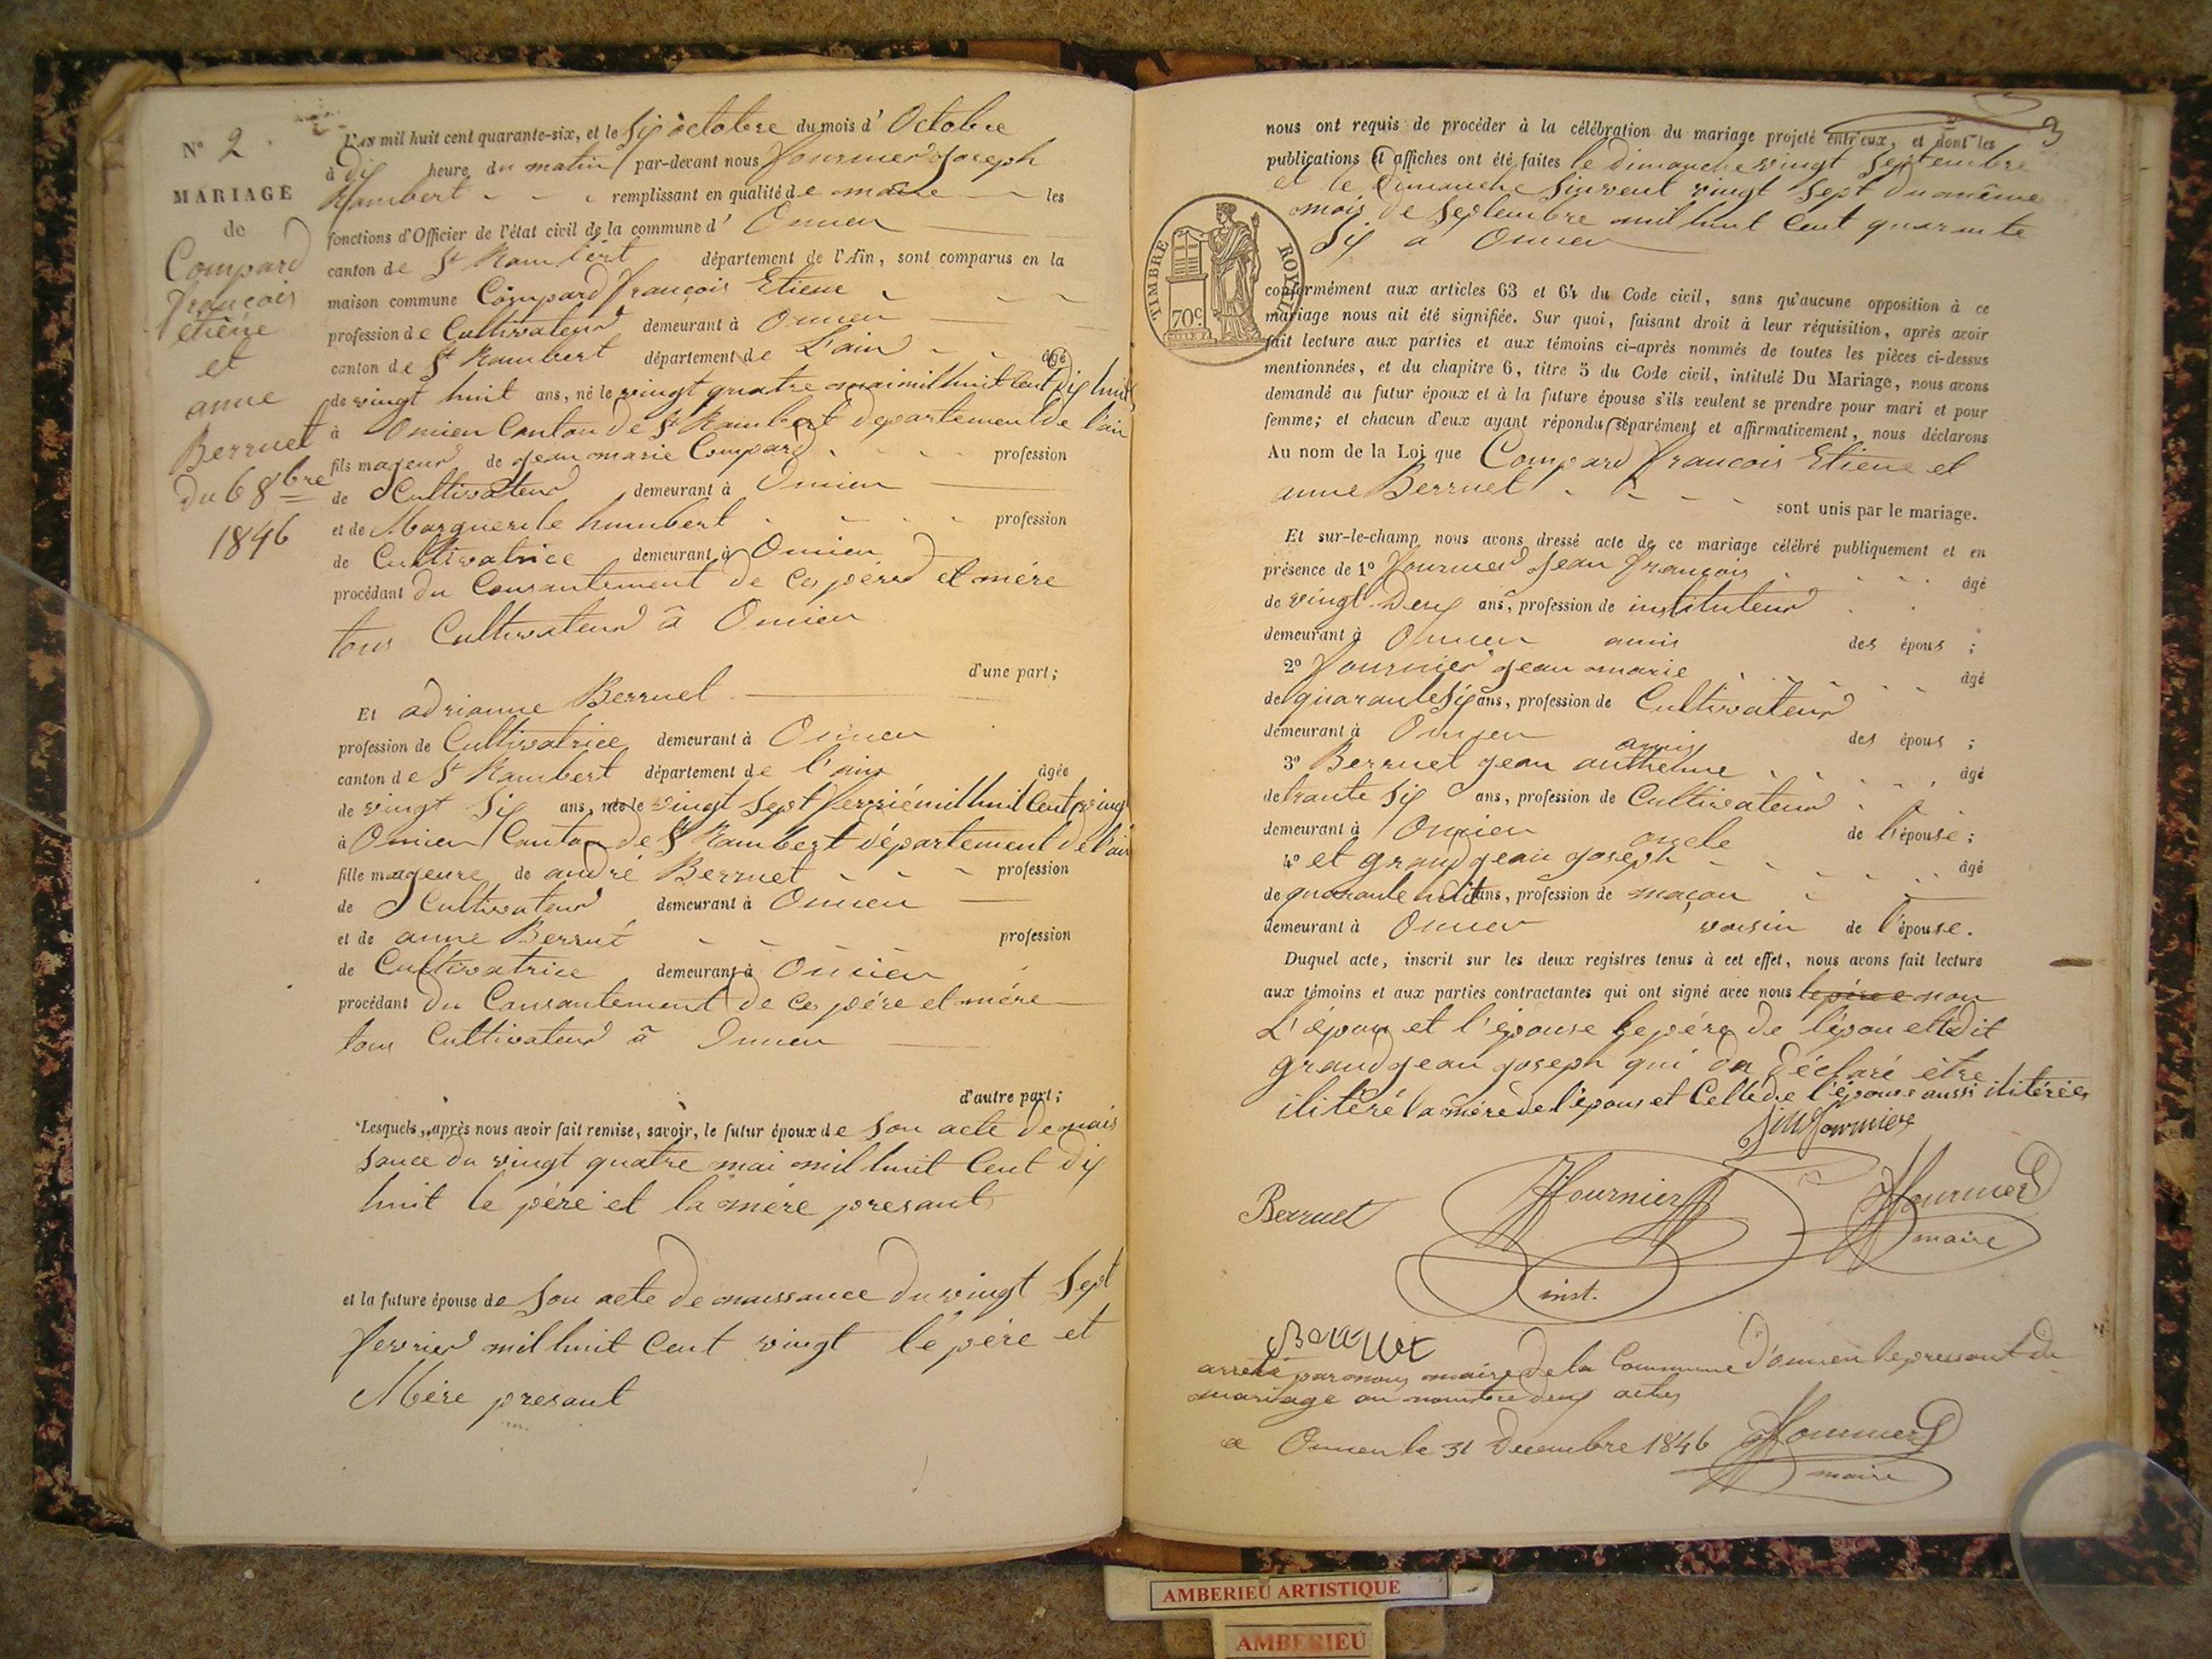 N° 2
MARIAGE
de
Compard
françois
etiene
et
anne
Berruet
du 6 8bre
1846
L'AN mil huit cent quarante-six, et le six octobre du mois d' Octobre
à dix heure du matin par-devant nous fournier Joseph
Rambert remplissant en qualité de maire les
fonctions d'Officier de l'état civil de la commune d' Oncieu
canton de St Rambert département de l'Ain, sont comparus en la
maison commune Compard françois Etiene
profession de Cultivateur demeurant à Oncieu
canton de St Rambert département de L'ain âgé
de vingt huit ans, né le vingt quatre mai mil huit Cent dix huit
à Oncieu Canton de St Rambert departement de l'ain
fils majeur de jean marie Compard profession
de Cultivateur demeurant à Oncieu
et de Marguerite humbert profession
de Cultivatrice demeurant à Oncieu
procédant du Consantement de Ces pére et mére
tous Cultivateur à Oncieu
d'une part;
Et adrianne Berruet
profession de Cultivatrice demeurant à Oncieu
canton de St Rambert département de l'ain âgée
de vingt six ans, née le vingt sept ferrié mil huit Cent vingt
à Oncieu Canton de St Rambert département de l'ain
fille majeure de andré Berruet profession
de Cultivateur demeurant à Oncieu
et de anne Berrut profession
de Cultivatrice demeurant à Oncieu
procédant du Consantement de Ces pére et mére
tous Cultivateur à Oncieu
d'autre part;
Lesquels, après nous avoir fait remise, savoir, le futur époux de Son acte de nais
sance du vingt quatre mai mil huit Cent dix
huit le pére et la mére presant
et la future épouse de Son acte de naissance du vingt Sept
fevrier mil huit Cent vingt le pére et
Mére presant
3
nous ont requis de procéder à la célébration du mariage projeté entr'eux, et dont les
publications et affiches ont été faites le dimanche vingt Septembre
et le Dimanche Suivent vingt Sept du même
mois de Septembre mil huit Cent quarante
Six a Oncieu
TIMBRE ROYAL
70c
conformément aux articles 63 et 64 du Code civil, sans qu'aucune opposition à ce
mariage nous ait été signifiée. Sur quoi, faisant droit à leur réquisition, après avoir
fait lecture aux parties et aux témoins ci-après nommés de toutes les pièces ci-dessus
mentionnées, et du chapitre 6, titre 5 du Code civil, intitulé Du Mariage, nous avons
demandé au futur époux et à la future épouse s'ils veulent se prendre pour mari et pour
femme; et chacun d'eux ayant répondu séparément et affirmativement, nous déclarons
Au nom de la Loi que Compard françois Etiene et
anne Berruet
sont unis par le mariage.
Et sur-le-champ nous avons dressé acte de ce mariage célébré publiquement et en
présence de 1° fournier Jean françois âgé
de vingt Deux ans, profession de instituteur
demeurant à Oncieu amis des épous ;
2° fournier jean marie âgé
de quarante six ans, profession de Cultivateur
demeurant à Oncieu amis des épous ;
3° Berruet jean anthelme âgé
de trante six ans, profession de Cultivateur
demeurant à Oncieu oncle de l'épouse;
4° et grandjean joseph âgé
de quarante huit ans, profession de maçon
demeurant à Oncieu voisin de l'épouse.
Duquel acte, inscrit sur les deux registres tenus à cet effet, nous avons fait lecture
aux témoins et aux parties contractantes qui ont signé avec nous le pére e non
L'épou et l'épouse le pére de l'épou et dit
grandjean joseph qui on déclaré être
ilitéré la mére de l'épous et Celle de l'épouse aussi ilitérées
jm fournier
Berruet
Jffournier
inst.
fournier
maire
Berruet
arreté par nous maire de la Commune d'oncieu le pressant du
mariage au nombre deux actes
a Oncieu le 31 Decembre 1846 fournier
maire
AMBERIEU ARTISTIQUE
AMBERIEU